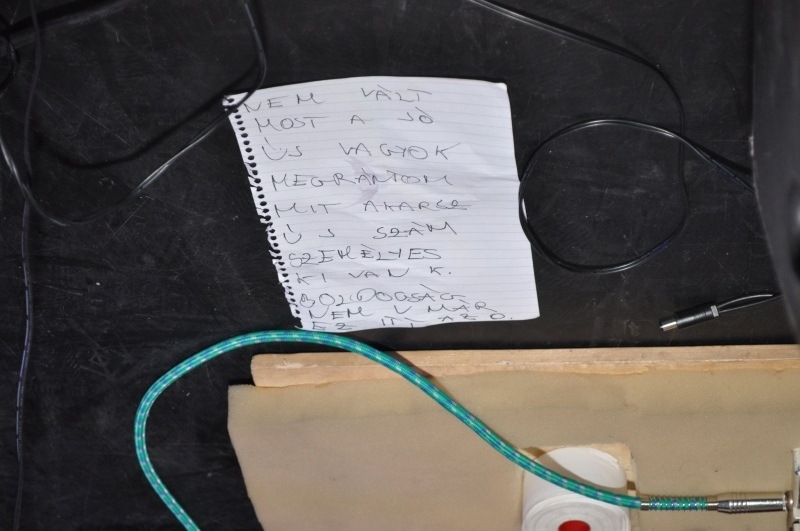 NEM VÀLT
MOST A JÒ
ÙJ VAGYOK
MEGRÀNTOM
MIT AKARSZ
ÙJ SZÀM
SZEMÈLYES
KI VAN K.
BOLDOGSÀG
NEM V MÀR
EZ ITT AZ Ö.